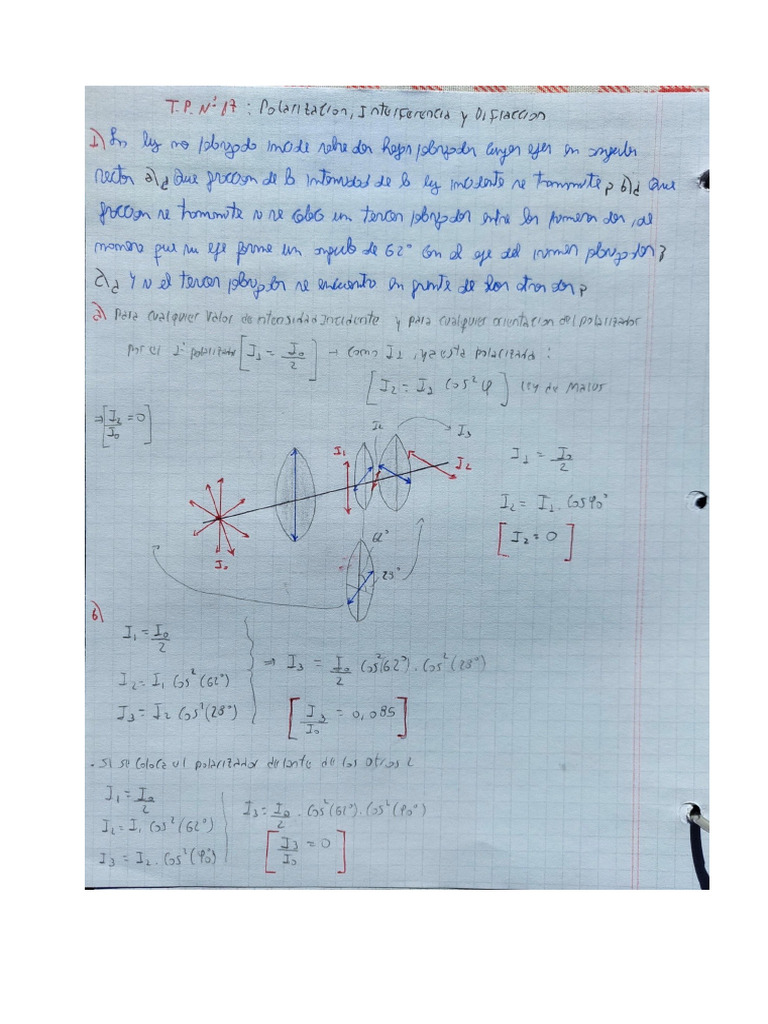 T.P. Nº 17: Polarizacion, Interferencia y Difraccion
1) La luz no polarizada incide sobre dos hojas polarizador cuyos ejes en angulos
rectos a)¿Que fraccion de la intensidad de la luz incidente se transmite? b)¿Que
fraccion se transmite si se coloca un tercer polarizador entre los primeros dos, de
manera que su eje forme un angulo de 62° con el eje del primer polarizador?
c)¿Y si el tercer polarizador se encuentra en frente de los otros dos?
a) Para cualquier valor de intensidad incidente y para cualquier orientacion del polarizador
por el 1º polarizador [I1 = I0/2] → como I1, ya esta polarizada:
[I2 = I1 cos²φ] Ley de Malus
⇒[I2/I0 = 0]
I2
I3
I1
I2
I0
62°
28°
I1 = I0/2
I2 = I1. cos 90°
[I2 = 0]
b)
I1 = I0/2
I2 = I1 cos²(62°)
I3 = I2 cos²(28°)
⇒ I3 = I0/2 cos²(62°). cos²(28°)
[I3/I0 = 0,085]
. Si se coloca el polarizador delante de los otros 2
I1 = I0/2
I2 = I1 cos²(62°)
I3 = I2. cos²(90°)
I3 = I0/2 . cos²(62°). cos²(90°)
[I3/I0 = 0]